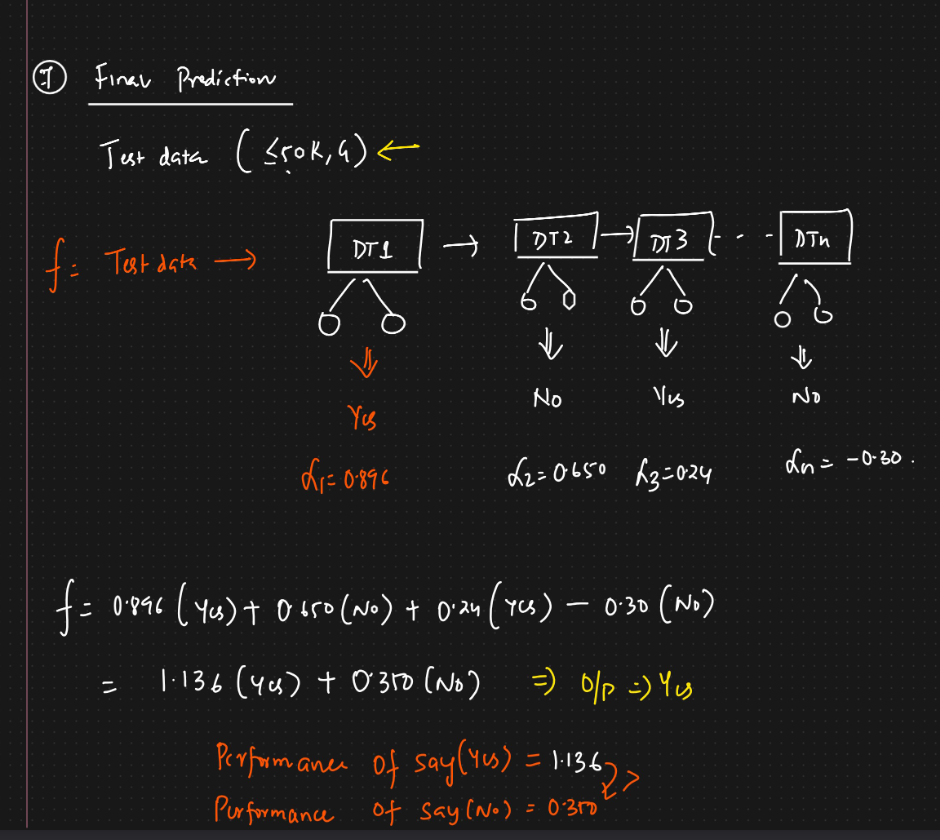 ⑦ Final Prediction
Test data (≤50K, G) ←
f = Test data → DT1 → DT2 → DT3 - - - DTn
⇓ ⇓ ⇓ ⇓
Yes No Yes No
α1 = 0.896 α2 = 0.650 α3 = 0.24 αn = -0.30.
f = 0.896 (Yes) + 0.650 (No) + 0.24 (Yes) - 0.30 (No)
= 1.136 (Yes) + 0.350 (No) ⇒ O/P ⇒ Yes
Performance of say (Yes) = 1.136
Performance of say (No) = 0.350